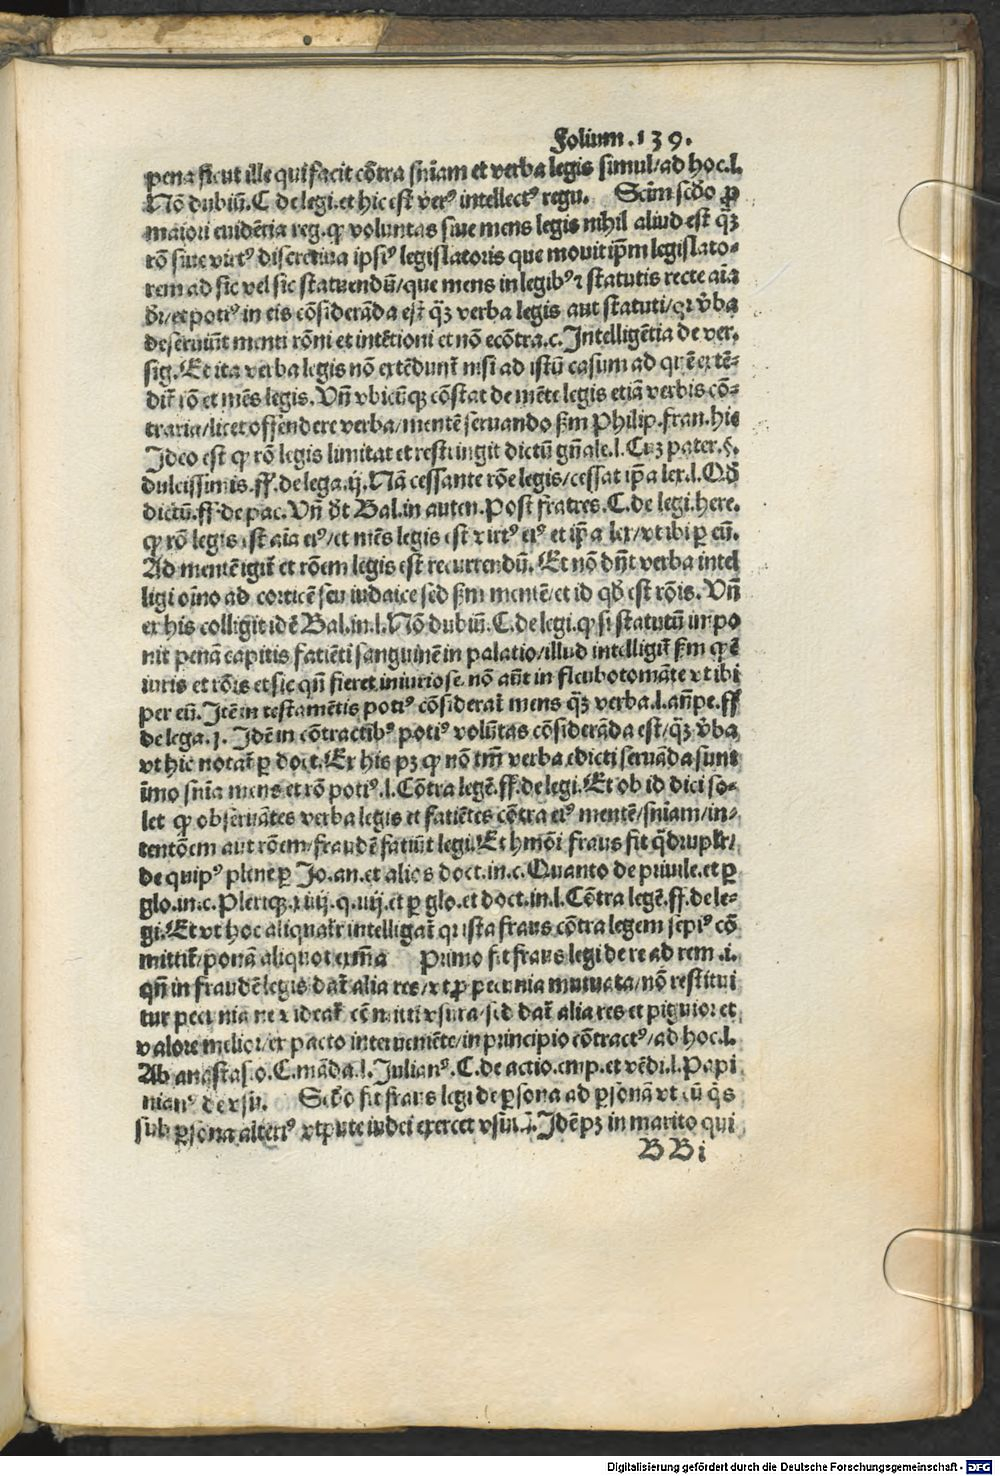 Folium .139.
pena sicut ille qui facit cõtra sñiam et verba legis simul/ad hoc.l.
Nõ dubiũ.C de legi.et hic est verꝰ intellectꝰ regu. Scim scďo ꝓ
maiori euidẽtia reg. ꝙ voluntas siue mens legis nihil aliud est q̃ȝ
rõ siue virtꝰ discretiua ipsiꝰ legislatoris que mouit ip̃m legislato⸗
rem ad sic vel sic statuendũ/que mens in legibꝰ ⁊ statutis recte aĩa
ďr/et potiꝰ in eis cõsiderãda est q̃ȝ verba legis aut statuti/qr v̓ba
deseruiũt menti rõni et intẽtioni et nõ ecõtra.c. Intelligẽtia de ver.
sig. Et ita verba legis nõ extẽdunt̃ nisi ad istũ casum ad quẽ extẽ⸗
dit̃ rõ et mẽs legis. Vñ vbicũqȝ cõstat de mẽte legis etiã verbis cõ⸗
traria/licet offendere verba/mentẽ seruando ẜm Philip.fran.hic
Ideo est ꝙ rõ legis limitat et restringit dictũ gñale.l.Cuȝ pater.§.
dulcissimis.ff.de lega.ij. Nã cessante rõe legis/cessat ip̃a lex.l.Qď
dictũ.ff.de pac. Vñ ďt Bal.in auten.Post fratres.C.de legi.here.
ꝙ rõ legis est aĩa eiꝰ/et mẽs legis est virtꝰ eiꝰ et ip̃a lex/vt ibi ꝑ eũ.
Ad mentẽ igit̃ et rõem legis est recurrendũ. Et nõ dñt verba intel
ligi oĩno ad corticẽ seu iudaice sed ẜm mentẽ/et id qď est rõis. Vñ
ex his colligit idẽ Bal.in.l.Nõ dubiũ.C.de legi.ꝙ si statutũ impo
nit penã capitis faciẽti sanguinẽ in palatio/illud intelligit̃ ẜm ꝙ ẽ
iuris et rõis et sic qñ fieret iniuriose.nõ aũt in fleubotomãte vt ibi
per eũ. Itẽ in testamẽtis potiꝰ cõsiderat̃ mens q̃ȝ verba.l.añpe.ff
de lega.j. Idẽ in cõtractibꝰ potiꝰ volũtas cõsiderãda est/q̃ȝ v̓ba
vt hic notat̃ ꝑ doct. Ex his pȝ ꝙ nõ tm̃ verba edicti seruãda sunt
ĩmo sñia mens et rõ potiꝰ.l.Cõtra legẽ.ff.de legi. Et ob id dici so⸗
let ꝙ obseruãtes verba legis et faciẽtes cõtra eiꝰ mentẽ/sñiam/in⸗
tentõem aut rõem/fraudẽ faciũt legi. Et hmõi fraus fit q̃drupl̃r/
de quipꝰ plene ꝑ Jo.an.et alios doct.in.c. Quanto de priuile.et ꝑ
glo.in.c.Pleriqȝ.xiiij.q.iiij.et ꝑ glo.et doct.in.l.Cõtra legẽ.ff.de le⸗
gi. Et vt hoc aliqual̃r intelligat̃ qr ista fraus cõtra legem sepiꝰ cõ
mittit̃/ponã aliquot exm̃a Primo fit fraus legi de re ad rem .i.
qñ in fraudẽ legis dat̃ alia res/vt ꝓ pecunia mutuata/nõ restitui
tur pecunia ne videat̃ cõmitti vsura/sed dat̃ alia res et piguior et
valore melior/ex pacto interueniẽte/in principio cõtractꝰ/ad hoc.l.
Ab anastasio.C.mãda.l.Julianꝰ.C.de actio.emp.et vẽdi.l.Papi
nianꝰ de vsu. Scďo fit fraus legi de ꝑsona ad ꝑsonã vt cũ q̃s
sub ꝑsona alteriꝰ vtpute iudei exercet vsurã. Idẽ pȝ in marito qui
BBi
Digitalisierung gefördert durch die Deutsche Forschungsgemeinschaft - DFG